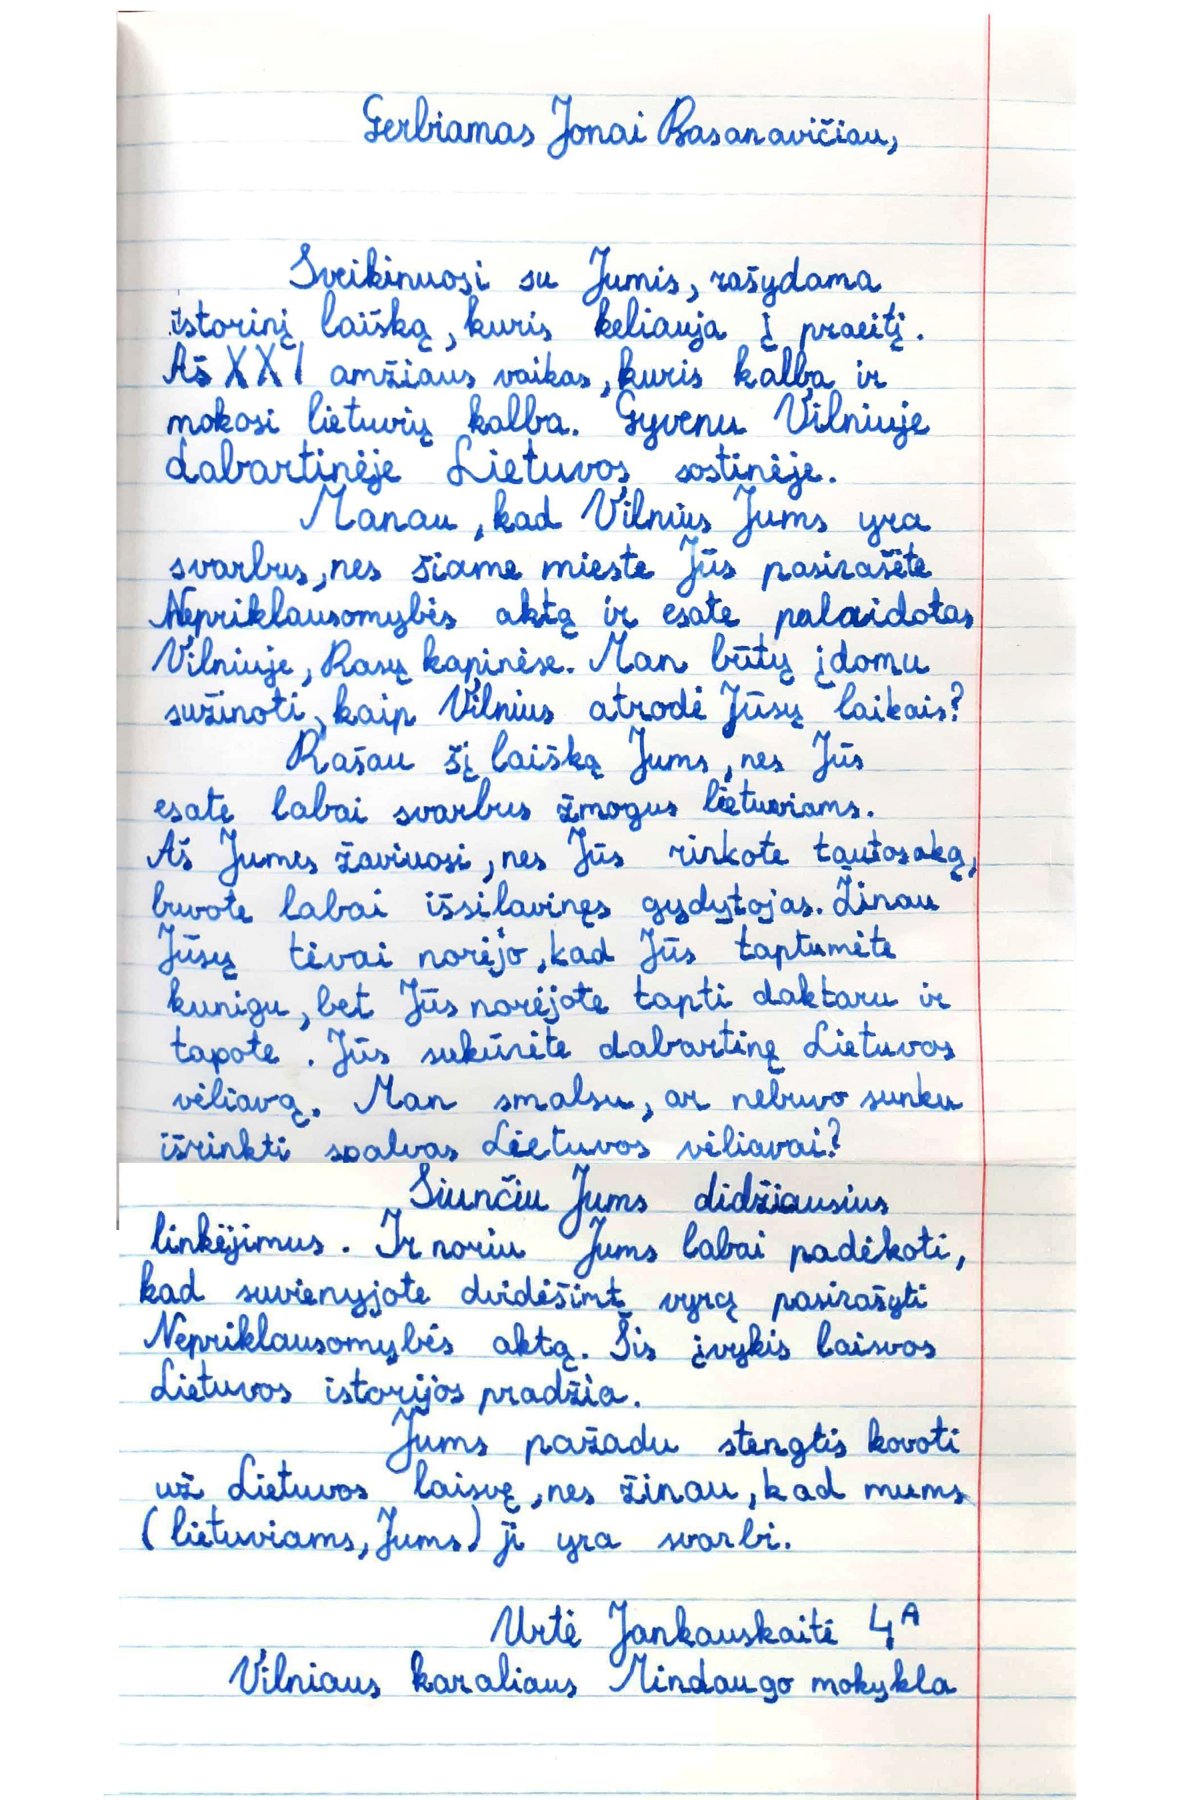 Gerbiamas Jonai Basanavičiau,
Sveikinuosi su Jumis, rašydama
istorinį laišką, kuris keliauja į praeitį.
Aš XXI amžiaus vaikas, kuris kalba ir
mokosi lietuvių kalba. Gyvenu Vilniuje
dabartinėje Lietuvos sostinėje.
Manau, kad Vilnius Jums yra
svarbus, nes šiame mieste Jūs pasirašėte
Nepriklausomybės aktą ir esate palaidotas
Vilniuje, Rasų kapinėse. Man būtų įdomu
sužinoti, kaip Vilnius atrodė Jūsų laikais?
Rašau šį laišką Jums, nes Jūs
esate labai svarbus žmogus lietuviams.
Aš Jumis žaviuosi, nes Jūs rinkote tautosaką,
buvote labai išsilavinęs gydytojas. Žinau
Jūsų tėvai norėjo, kad Jūs taptumėte
kunigu, bet Jūs norėjote tapti daktaru ir
tapote. Jūs sukūrėte dabartinę Lietuvos
vėliavą. Man smalsu, ar nebuvo sunku
išrinkti spalvas Lietuvos vėliavai?
Siunčiu Jums didžiausius
linkėjimus. Ir noriu Jums labai padėkoti,
kad suvienyjote dvidešimt vyrų pasirašyti
Nepriklausomybės aktą. Šis įvykis laisvos
Lietuvos istorijos pradžia.
Jums pažadu stengtis kovoti
už Lietuvos laisvę, nes žinau, kad mums
(lietuviams, Jums) ji yra svarbi.
Urtė Jankauskaitė 4A
Vilniaus karaliaus Mindaugo mokykla